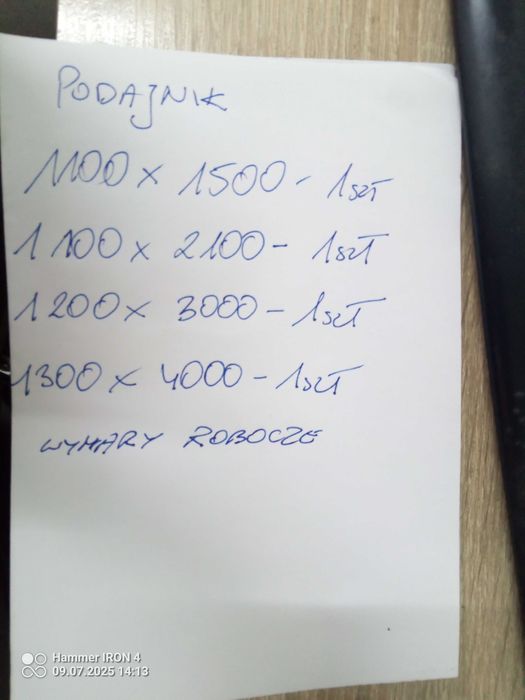 PODAJNIK
1100 x 1500 - 1szt
1100 x 2100 - 1szt
1200 x 3000 - 1szt
1300 x 4000 - 1szt
WYMIARY ROBOCZE
Hammer IRON 4
09.07.2025 14:13